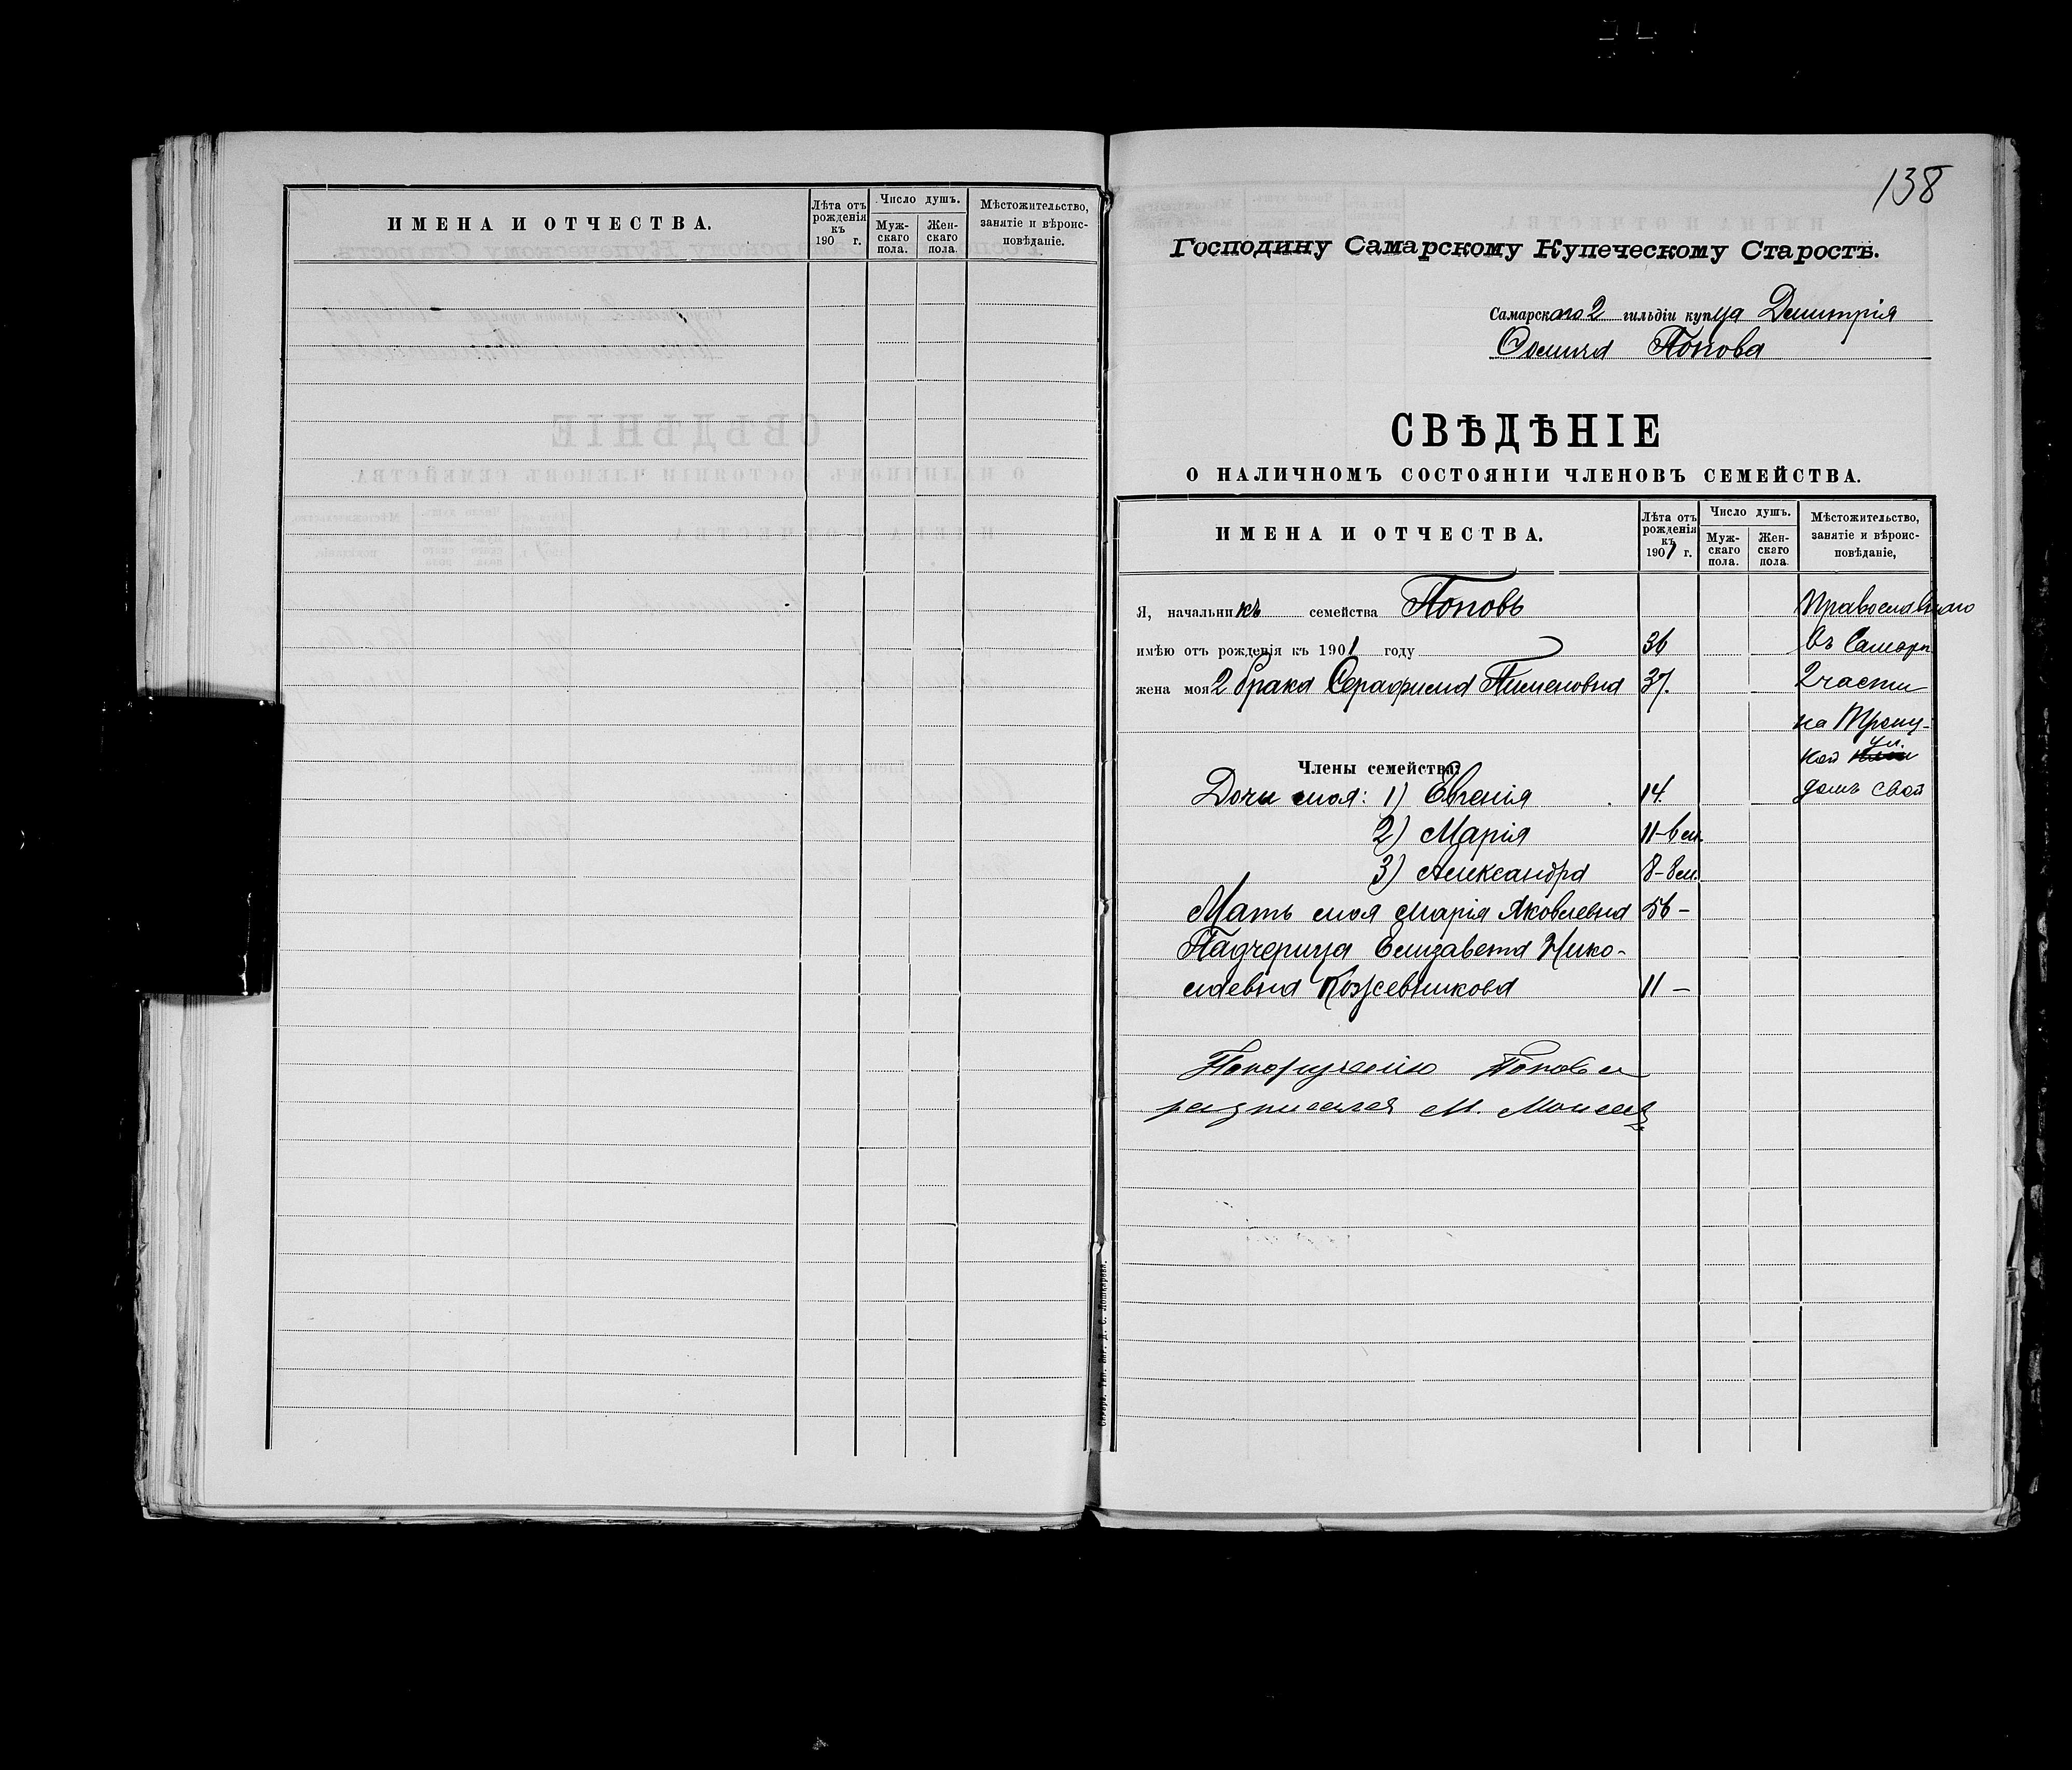 ИМЕНА И ОТЧЕСТВА.
Лѣта отъ рожденія къ 190 г.
Число душъ.
Муж-скаго пола.
Жен-скаго пола.
Мѣстожительство, занятіе и вѣроис-повѣданіе.
138
Господину Самарскому Купеческому Старостѣ.
Самарскаго 2 гильдіи купца Димитрія
Ѳомича Попова
СВѢДѢНІЕ
О НАЛИЧНОМЪ СОСТОЯНІИ ЧЛЕНОВЪ СЕМЕЙСТВА.
ИМЕНА И ОТЧЕСТВА.
Лѣта отъ рожденія къ 1901 г.
Число душъ.
Муж-скаго пола.
Жен-скаго пола.
Мѣстожительство, занятіе и вѣроис-повѣданіе,
Я, начальникъ семейства Поповъ Православнаго
имѣю отъ рожденія къ 1901 году 36 Въ Самарѣ
жена моя 2 брака Серафима Пименовна 37. 2 части
на Троиц-
кой ул.
Члены семейства:
Дочи моя: 1) Евгенія 14. домъ свой
2) Марія 11-6 м.
3) Александра 8-8 м.
Мать моя Марія Яковлевна 56 -
Падчерица Елизавета Нико-
лаевна Кожевникова 11 -
По порученію Попова
росписался М.
Самара. Тип. Внг. Д. С. Лошкарева.